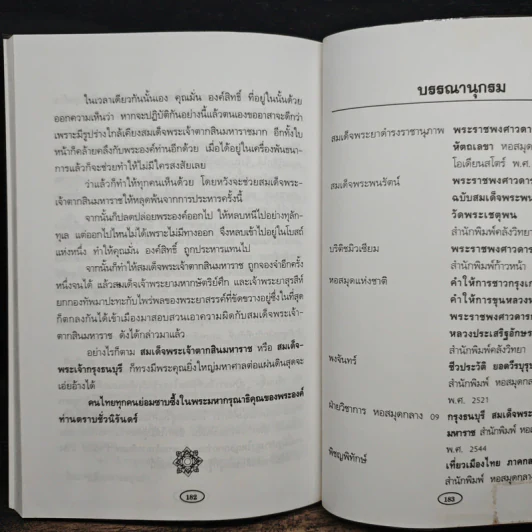 ในเวลาเดียวกันนั้นเอง คุณมั่น องค์สิทธิ์ ที่อยู่ในนั้นด้วย
ออกความเห็นว่า หากจะปฏิบัติกันอย่างนี้แล้วตนเองขออาสาจะดีกว่า
เพราะมีรูปร่างใกล้เคียงสมเด็จพระเจ้าตากสินมหาราชมาก อีกทั้งใบ
หน้าก็คล้ายคลึงกับพระองค์ท่านอีกด้วย เมื่อได้อยู่ในเครื่องพันธนา-
การแล้วก็จะช่วยทำให้ไม่มีใครสงสัยเลย
ว่าแล้วก็ทำให้ทุกคนเห็นด้วย โดยหวังจะช่วยสมเด็จพระ-
เจ้าตากสินมหาราชให้หลุดพ้นจากการประหารครั้งนี้
จากนั้นก็ปลดปล่อยพระองค์ออกไป ให้หลบหนีไปอย่างทุลัก-
ทุเล แต่ออกไปไหนไม่ได้เพราะไม่มีทางออก จึงหลบเข้าไปอยู่ในโบสถ์
แห่งหนึ่ง ทำให้คุณมั่น องค์สิทธิ์ ถูกประหารแทนไป
จากนั้นก็ทำให้สมเด็จพระเจ้าตากสินมหาราช ถูกจองจำอีกครั้ง
หนึ่งจนได้ แล้วสมเด็จเจ้าพระยามหากษัตริย์ศึก และเจ้าพระยาสุรสีห์
ยกกองทัพมาปะทะกับไพร่พลของพระยาสรรค์ที่ขัดขวางอยู่ซึ่งในที่สุด
ก็ตกลงกันได้เข้าเมืองมาสอบสวนเอาความผิดกับสมเด็จพระเจ้า-
ตากสินมหาราช ดังได้กล่าวมาแล้ว
อย่างไรก็ตาม สมเด็จพระเจ้าตากสินมหาราช หรือ สมเด็จ-
พระเจ้ากรุงธนบุรี ก็ทรงมีพระคุณยิ่งใหญ่มหาศาลต่อแผ่นดินสุดจะ
เอ่ยอ้างได้
คนไทยทุกคนย่อมซาบซึ้งในพระมหากรุณาธิคุณของพระองค์
ท่านตราบชั่วนิรันดร์
182
บรรณานุกรม
สมเด็จพระยาดำรงราชานุภาพ พระราชพงศาวดาร
หัตถเลขา หอสมุด
โอเดียนสโตร์ พ.ศ.
สมเด็จพระพนรัตน์ พระราชพงศาวดาร
ฉบับสมเด็จพระพน
วัดพระเชตุพน
สำนักพิมพ์คลังวิทยา
บริติชมิวเซียม พระราชพงศาวดาร
สำนักพิมพ์ก้าวหน้า
หอสมุดแห่งชาติ คำให้การชาวกรุงเก่า
คำให้การขุนหลวง
พระราชพงศาวดาร
หลวงประเสริฐอักษร
สำนักพิมพ์คลังวิทยา
พงจันทร์ ชีวประวัติ ยอดวีรบุรุษ
สำนักพิมพ์ หอสมุด
พ.ศ. 2521
ฝ่ายวิชาการ หอสมุดกลาง 09 กรุงธนบุรี สมเด็จพระ
มหาราช สำนักพิมพ์ หอ
พ.ศ. 2544
พิชญพิทักษ์ เที่ยวเมืองไทย ภาคกลาง
สำนักพิมพ์ หอสมุดกลาง
183